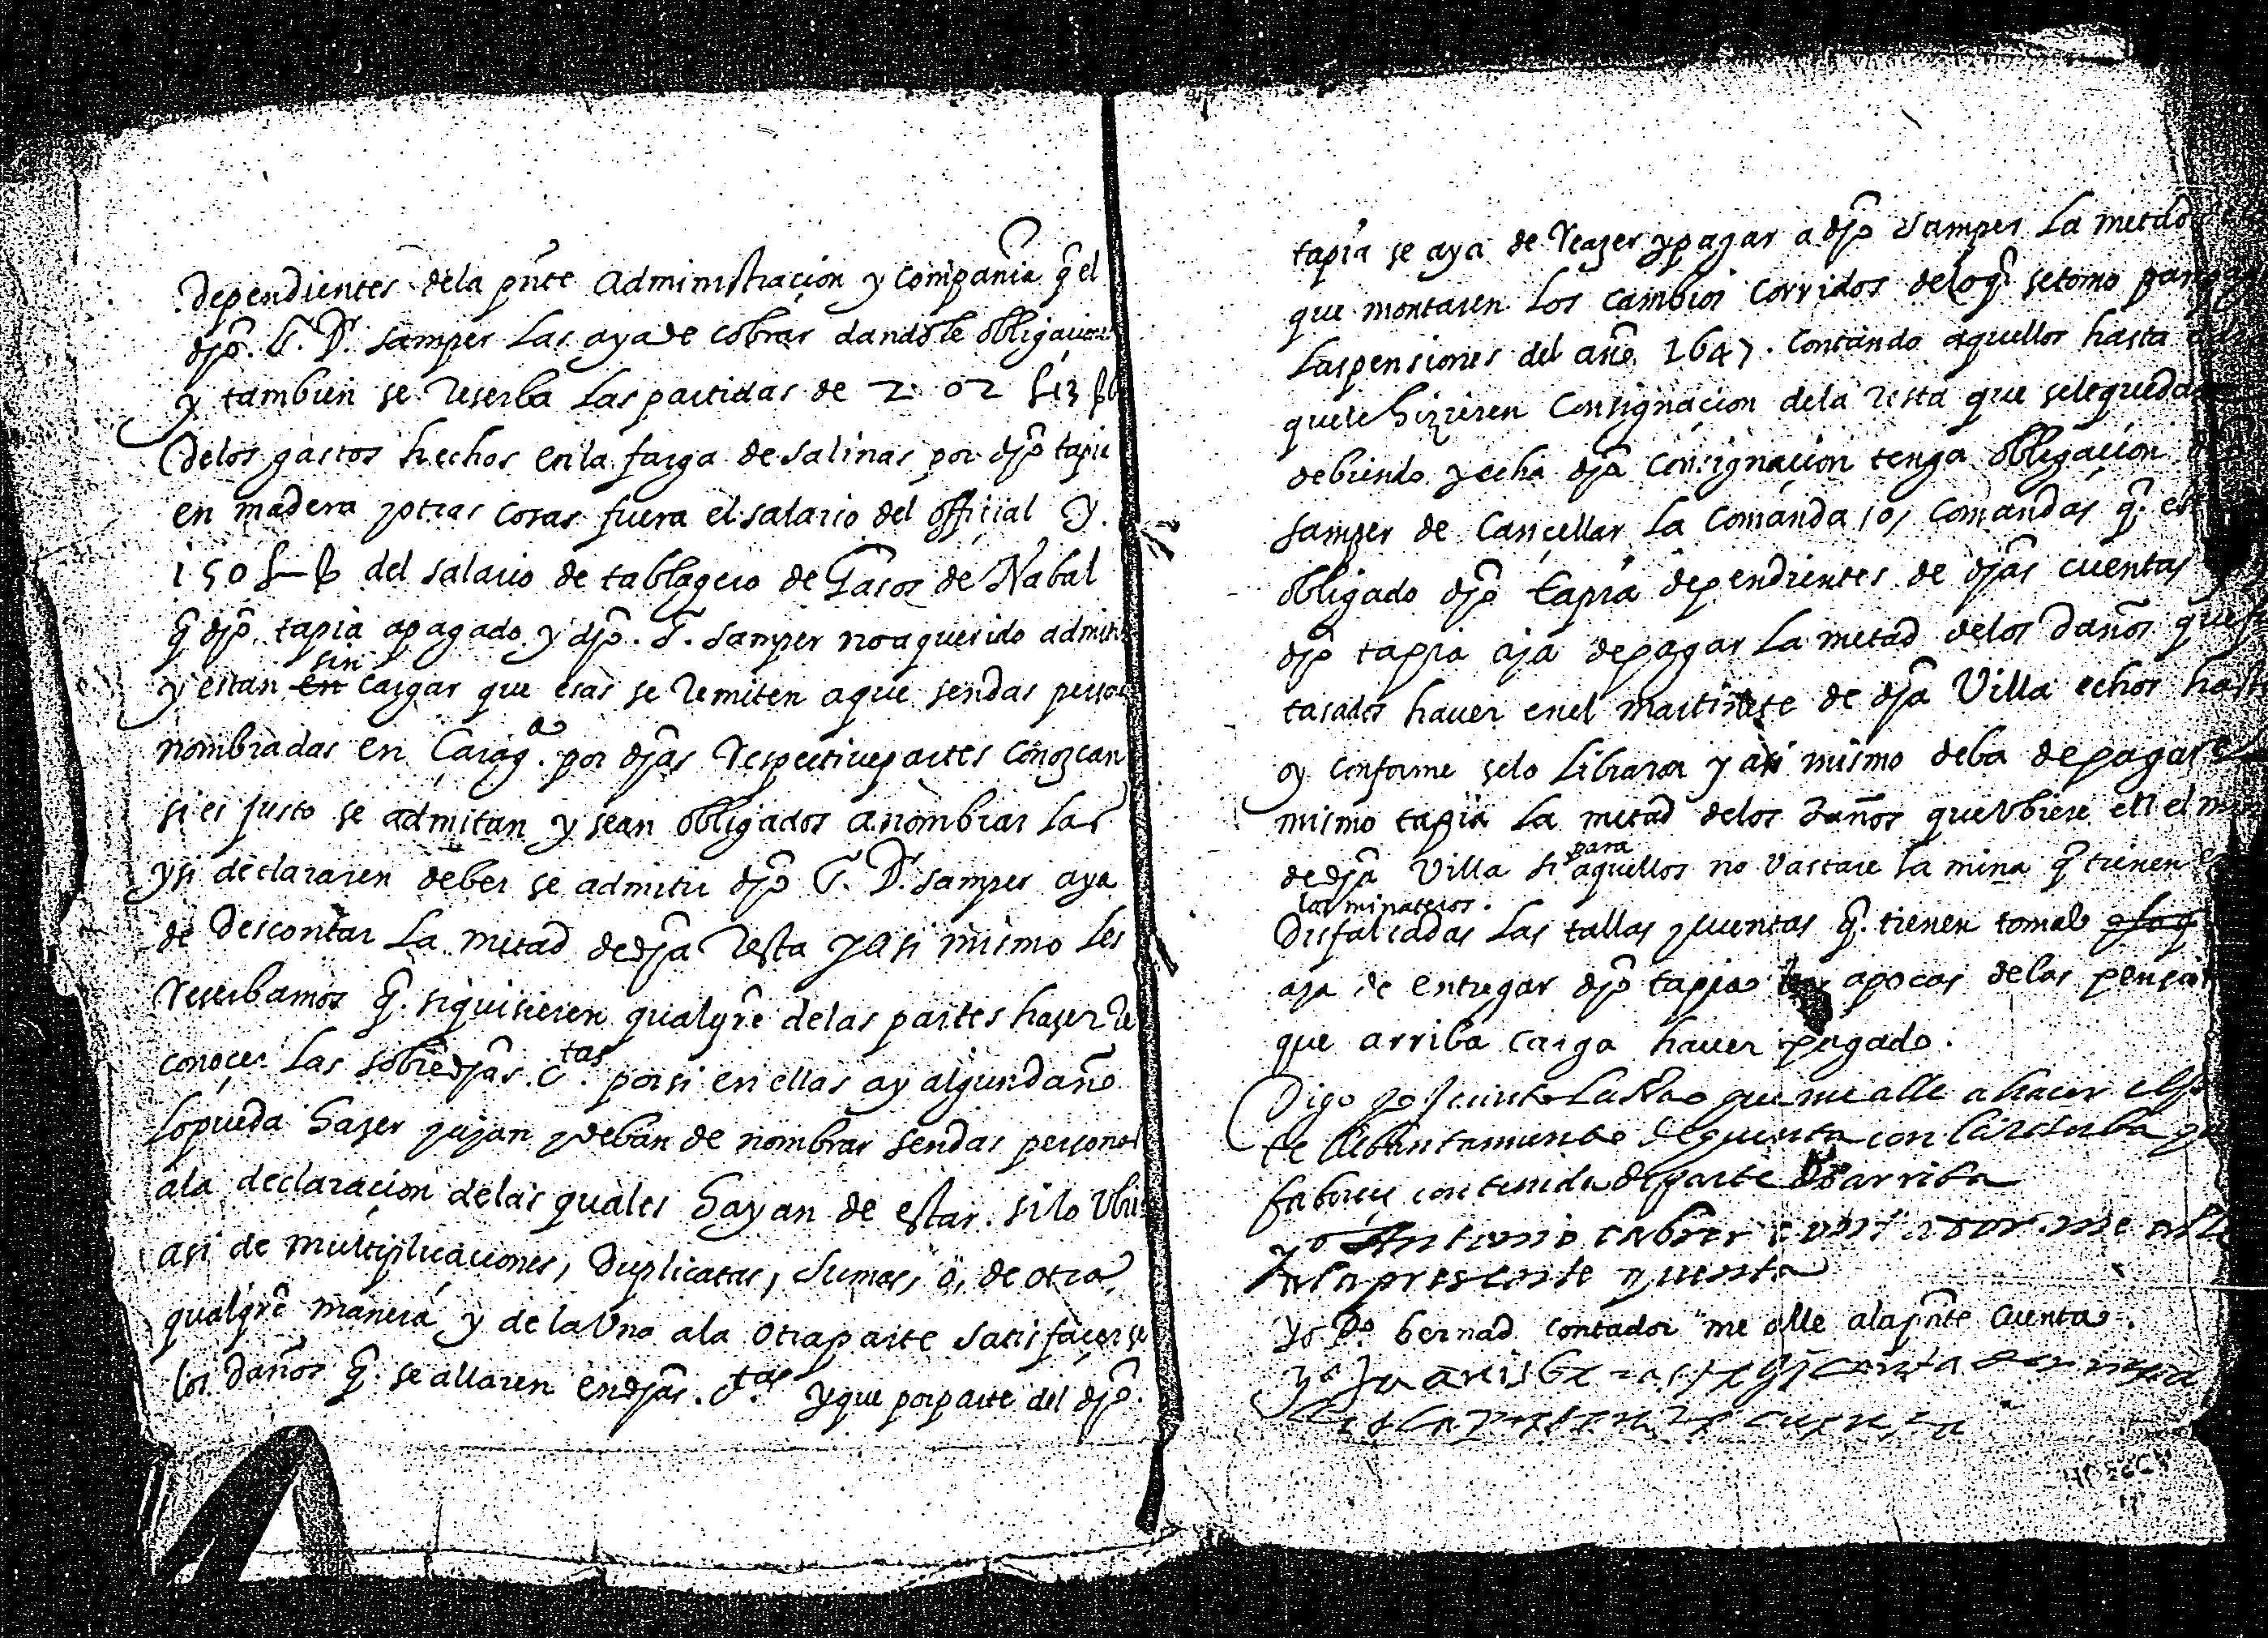 Dependientes dela pnte Administracion y Compania q̃ el
djo. G. Dr. Samper las aya de cobrar dandole obligacion
y tambien se reserba las partidas de 202 £ 13 ß
delos gastos hechos en la farga de salinas por djo tapia
en madera y otras cosas fuera el salario del official y
150 £ — ß del salario de tablagero de Gasos de Nabal
q̃ djo. tapia a pagado y djo. G. Samper no a querido admitir
y estan en sin cargar que esas se remiten a que sendas personas
nombradas en Carag.a por djas respective partes conozcan
si es justo se admitan y sean obligados a nombrarlas
y si declararen deber se admitir djo G. Dr. Samper aya
de Descontar la mitad dedja resta y asi mismo les
reserbamos q̃. si quisieren qualqre delas partes hazer re
conocer las sobredjas. C.tas por si en ellas ay algun daño
lo pueda hazer y ajan y deban de nombrar sendas personas
ala declaracion delas quales hayan de estar. si lo Ubiere
asi de multiplicaciones, Duplicatas, sumas, o, de otra
qualqre manera y de la Una ala otra parte satisfacer se
los Daños q̃. se allaren en djas. C.tas y que por parte del djo.
tapia se aya de reazer y pagar a djo Samper la metad
que montaren los cambios corridos delo q̃. se tomo
las pensiones del año 1647. contando aquellos hasta
que le hizieren Consignacion dela resta que sele quedare
debiendo y echa dja consignacion tenga obligacion
Samper de Cancellar la Comanda, o, Comandas q̃.
obligado djo tapia dependientes de djas cuentas
djo tapia aja de pagar la metad delos daños que
tasados haver en el martinete de dja Villa echos hasta
oy conforme selo libraron y asi mismo deba de pagar
mismo tapia la metad delos Daños que Ubiere en el
dedja Villa si para aquellos no Vastare la mina q̃ tienen
los minateros.
Disfalcadas las tallas y cuentas q̃. tienen tomado
aja de entregar djo tapia las apocas delas
que arriba carga haver pagado.
Digo yo que me alle a hacer el
con la reserba
contenida de parte de arriba
yo Antonio cabrer contador me
ala presente quenta
yo Po. bernad contador me alle ala pnte cuenta.
yo Juan
ala presente cuenta